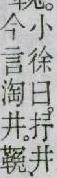 小徐曰。抒井
今言淘井。鞔